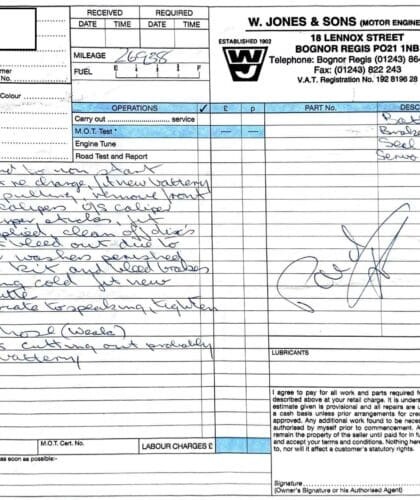 RECEIVED REQUIRED
DATE TIME DATE TIME
MILEAGE 26958
FUEL E F
mer
No.
Colour
ESTABLISHED 1902
W J
W. JONES & SONS (MOTOR ENGINE
18 LENNOX STREET
BOGNOR REGIS PO21 1NB
Telephone: Bognor Regis (01243) 864
Fax: (01243) 822 243
V.A.T. Registration No. 192 8196 28
OPERATIONS ✓ £ p
Carry out service
M.O.T. Test* — —
Engine Tune
Road Test and Report
PART No. DESC
Bat
Brake
Seal
Servo
to non start
re charge, fit new battery
pulling, remove front
calipers O/S caliper
fit
clean off discs
bleed out due to
washers perished
kit and bleed brakes
cold fit new
to speaking, tighten
Hose (Weak)
cutting out probably
battery
LUBRICANTS
I agree to pay for all work and parts required fo
described above at your retail charge. It is unders
estimate given is provisional and all repairs are u
a cash basis unless prior arrangements for cred
approved. Any additional work found to be neces
authorised by myself prior to commencement. A
remain the property of the seller until paid for in fu
and accept your terms and conditions. Nothing here
to, nor will it affect a customer's statutory rights.
M.O.T. Cert. No. LABOUR CHARGES £
as soon as possible:-
Signature
(Owner's Signature or his Authorised Agent)